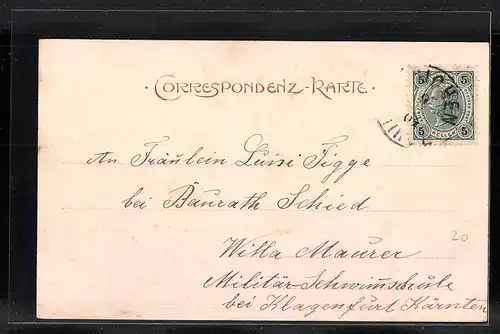 · Correspondenz-Karte ·
5 5
5 5
An Fräulein Luisi Figge
bei Baurath Schied
Willa Maurer
20
Militär-Schwimschule
bei Klagenfurt Kärnten